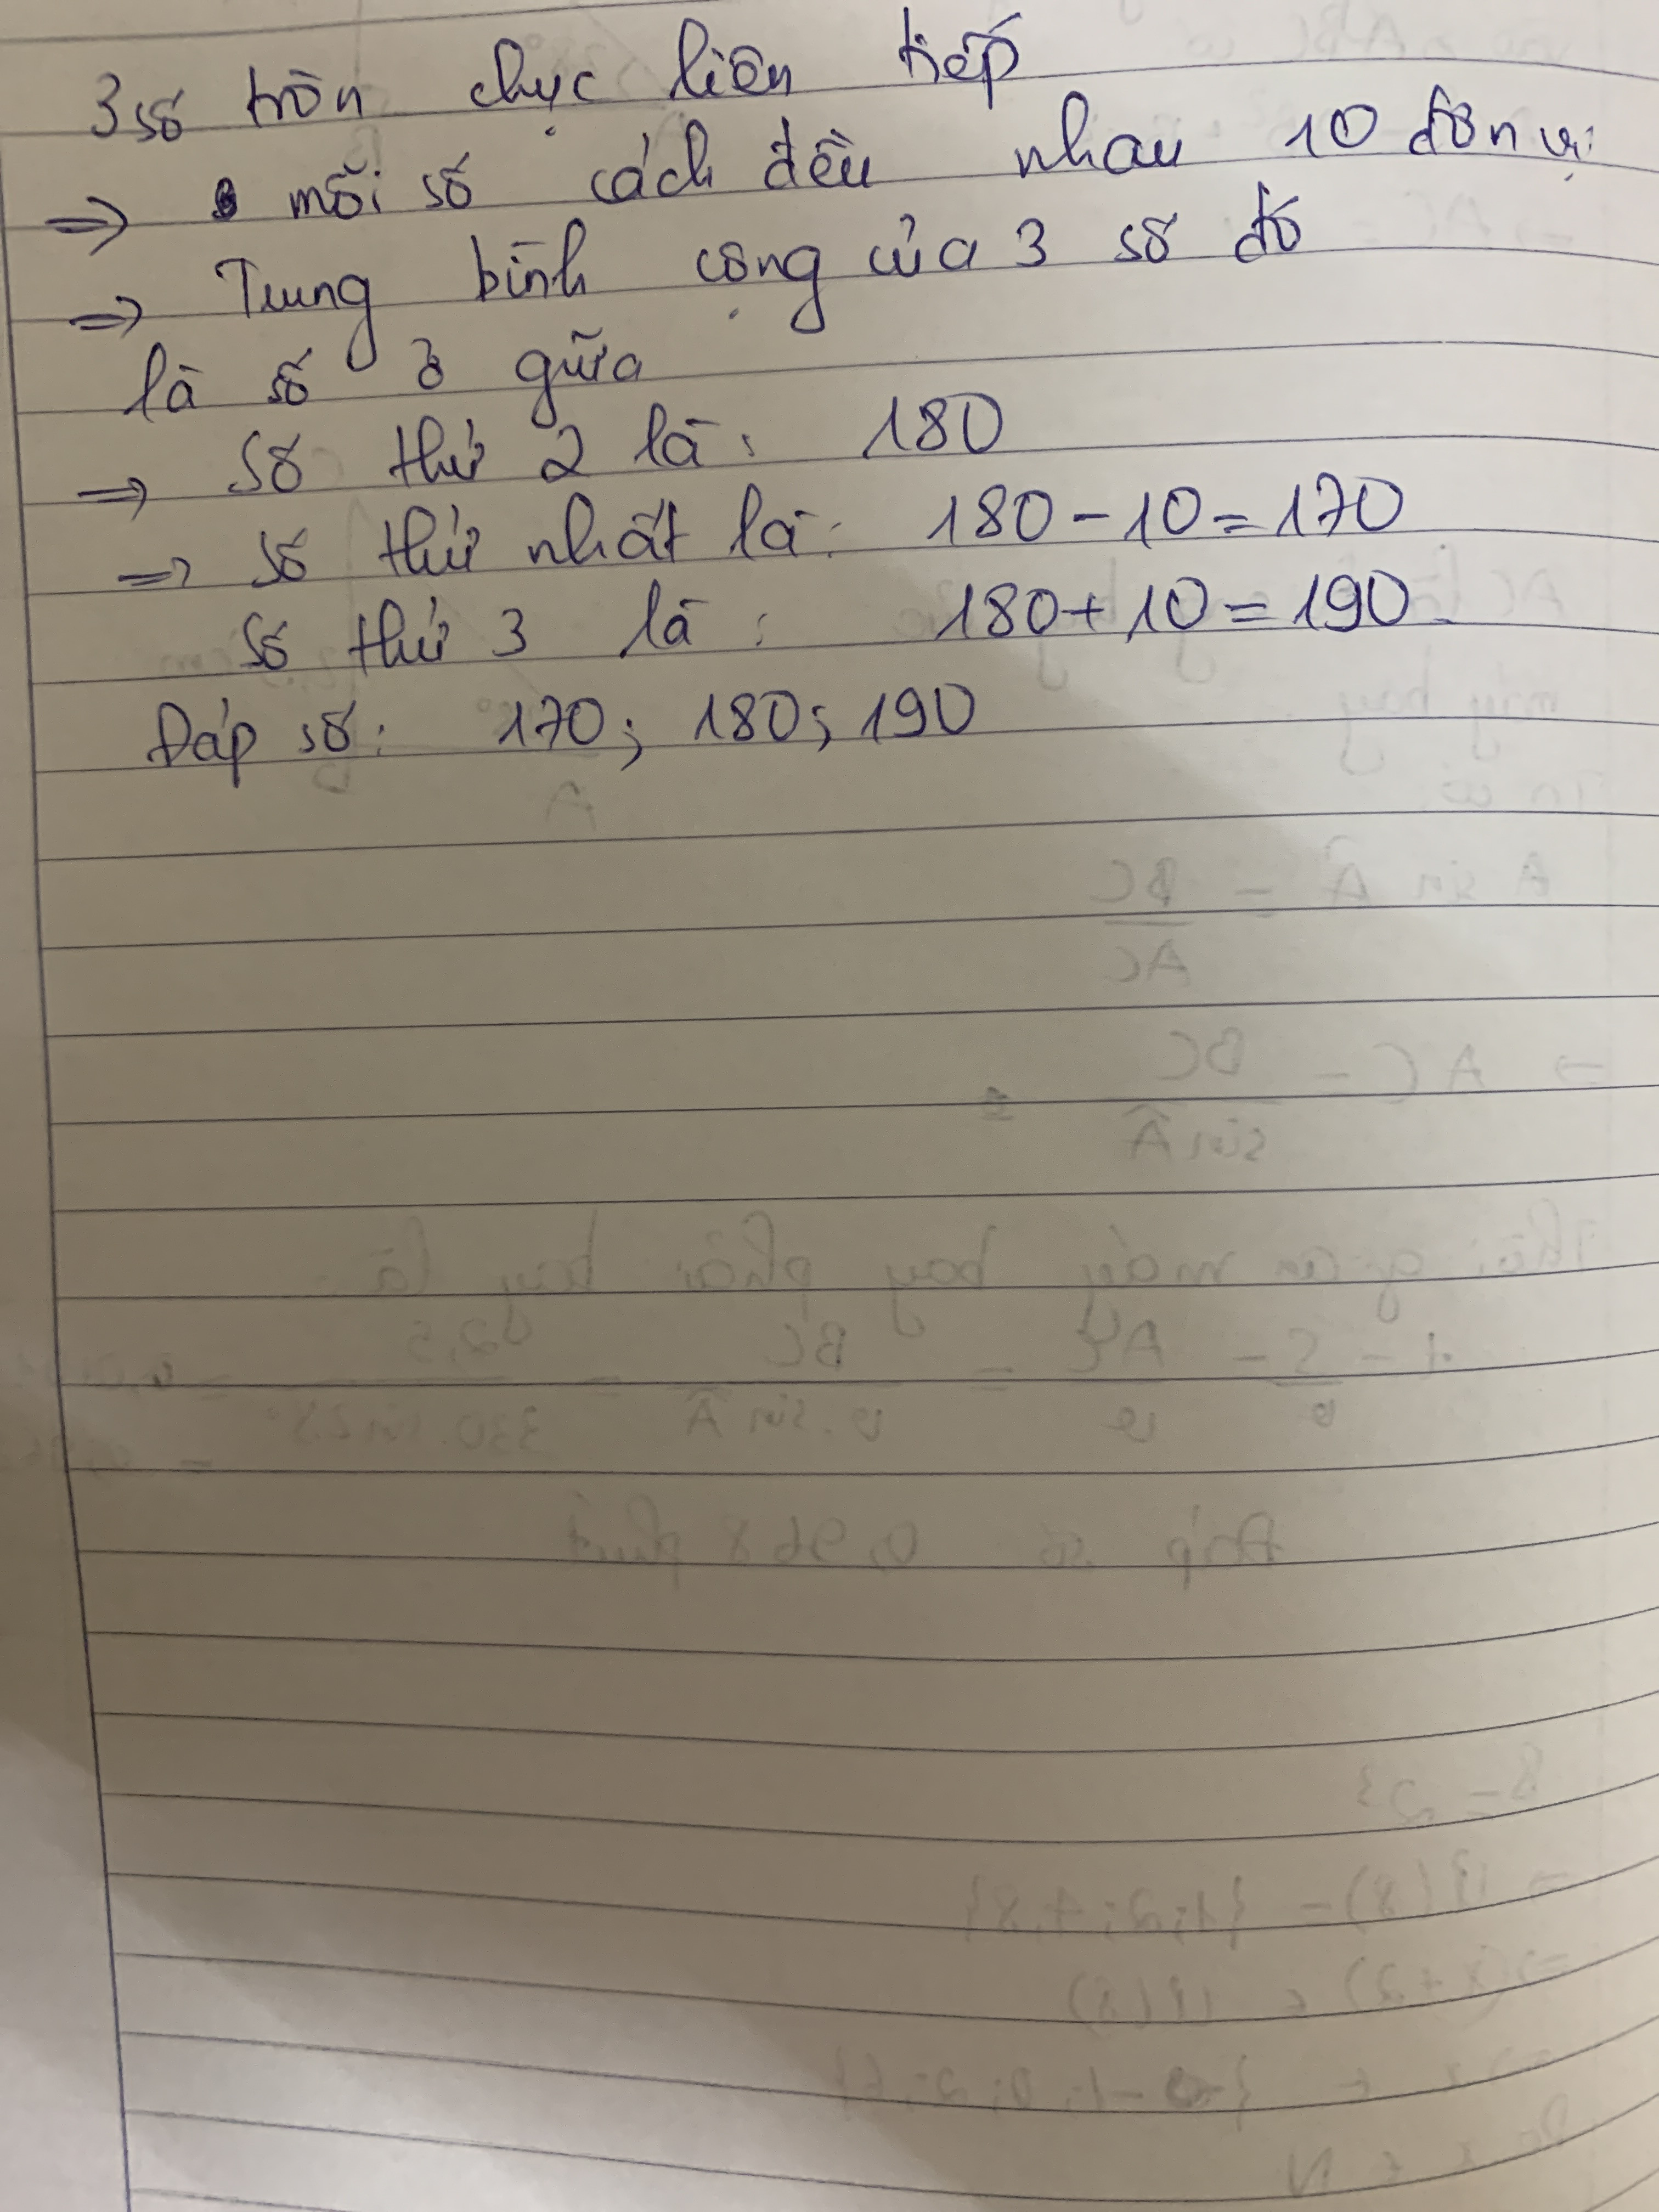 3 số tròn chục liên tiếp
=> mỗi số cách đều nhau 10 đơn vị
=> Trung bình cộng của 3 số đó
là số ở giữa
=> Số thứ 2 là: 180
=> Số thứ nhất là: 180 - 10 = 170
Số thứ 3 là: 180 + 10 = 190
Đáp số: 170; 180; 190